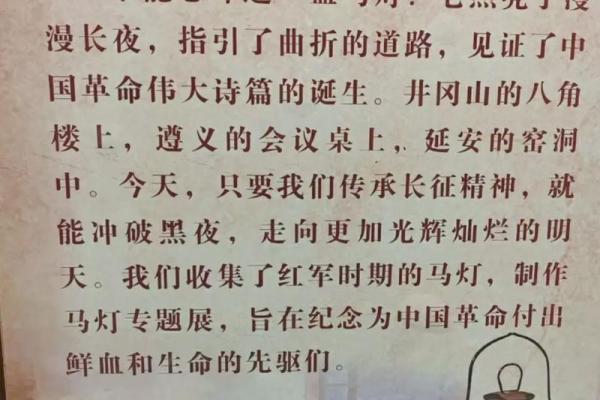 漫长夜，指引了曲折的道路，见证了中
国革命伟大诗篇的诞生。井冈山的八角
楼上，遵义的会议桌上，延安的窑洞
中。今天，只要我们传承长征精神，就
能冲破黑夜，走向更加光辉灿烂的明
天。我们收集了红军时期的马灯，制作
马灯专题展，旨在纪念为中国革命付出
鲜血和生命的先驱们。